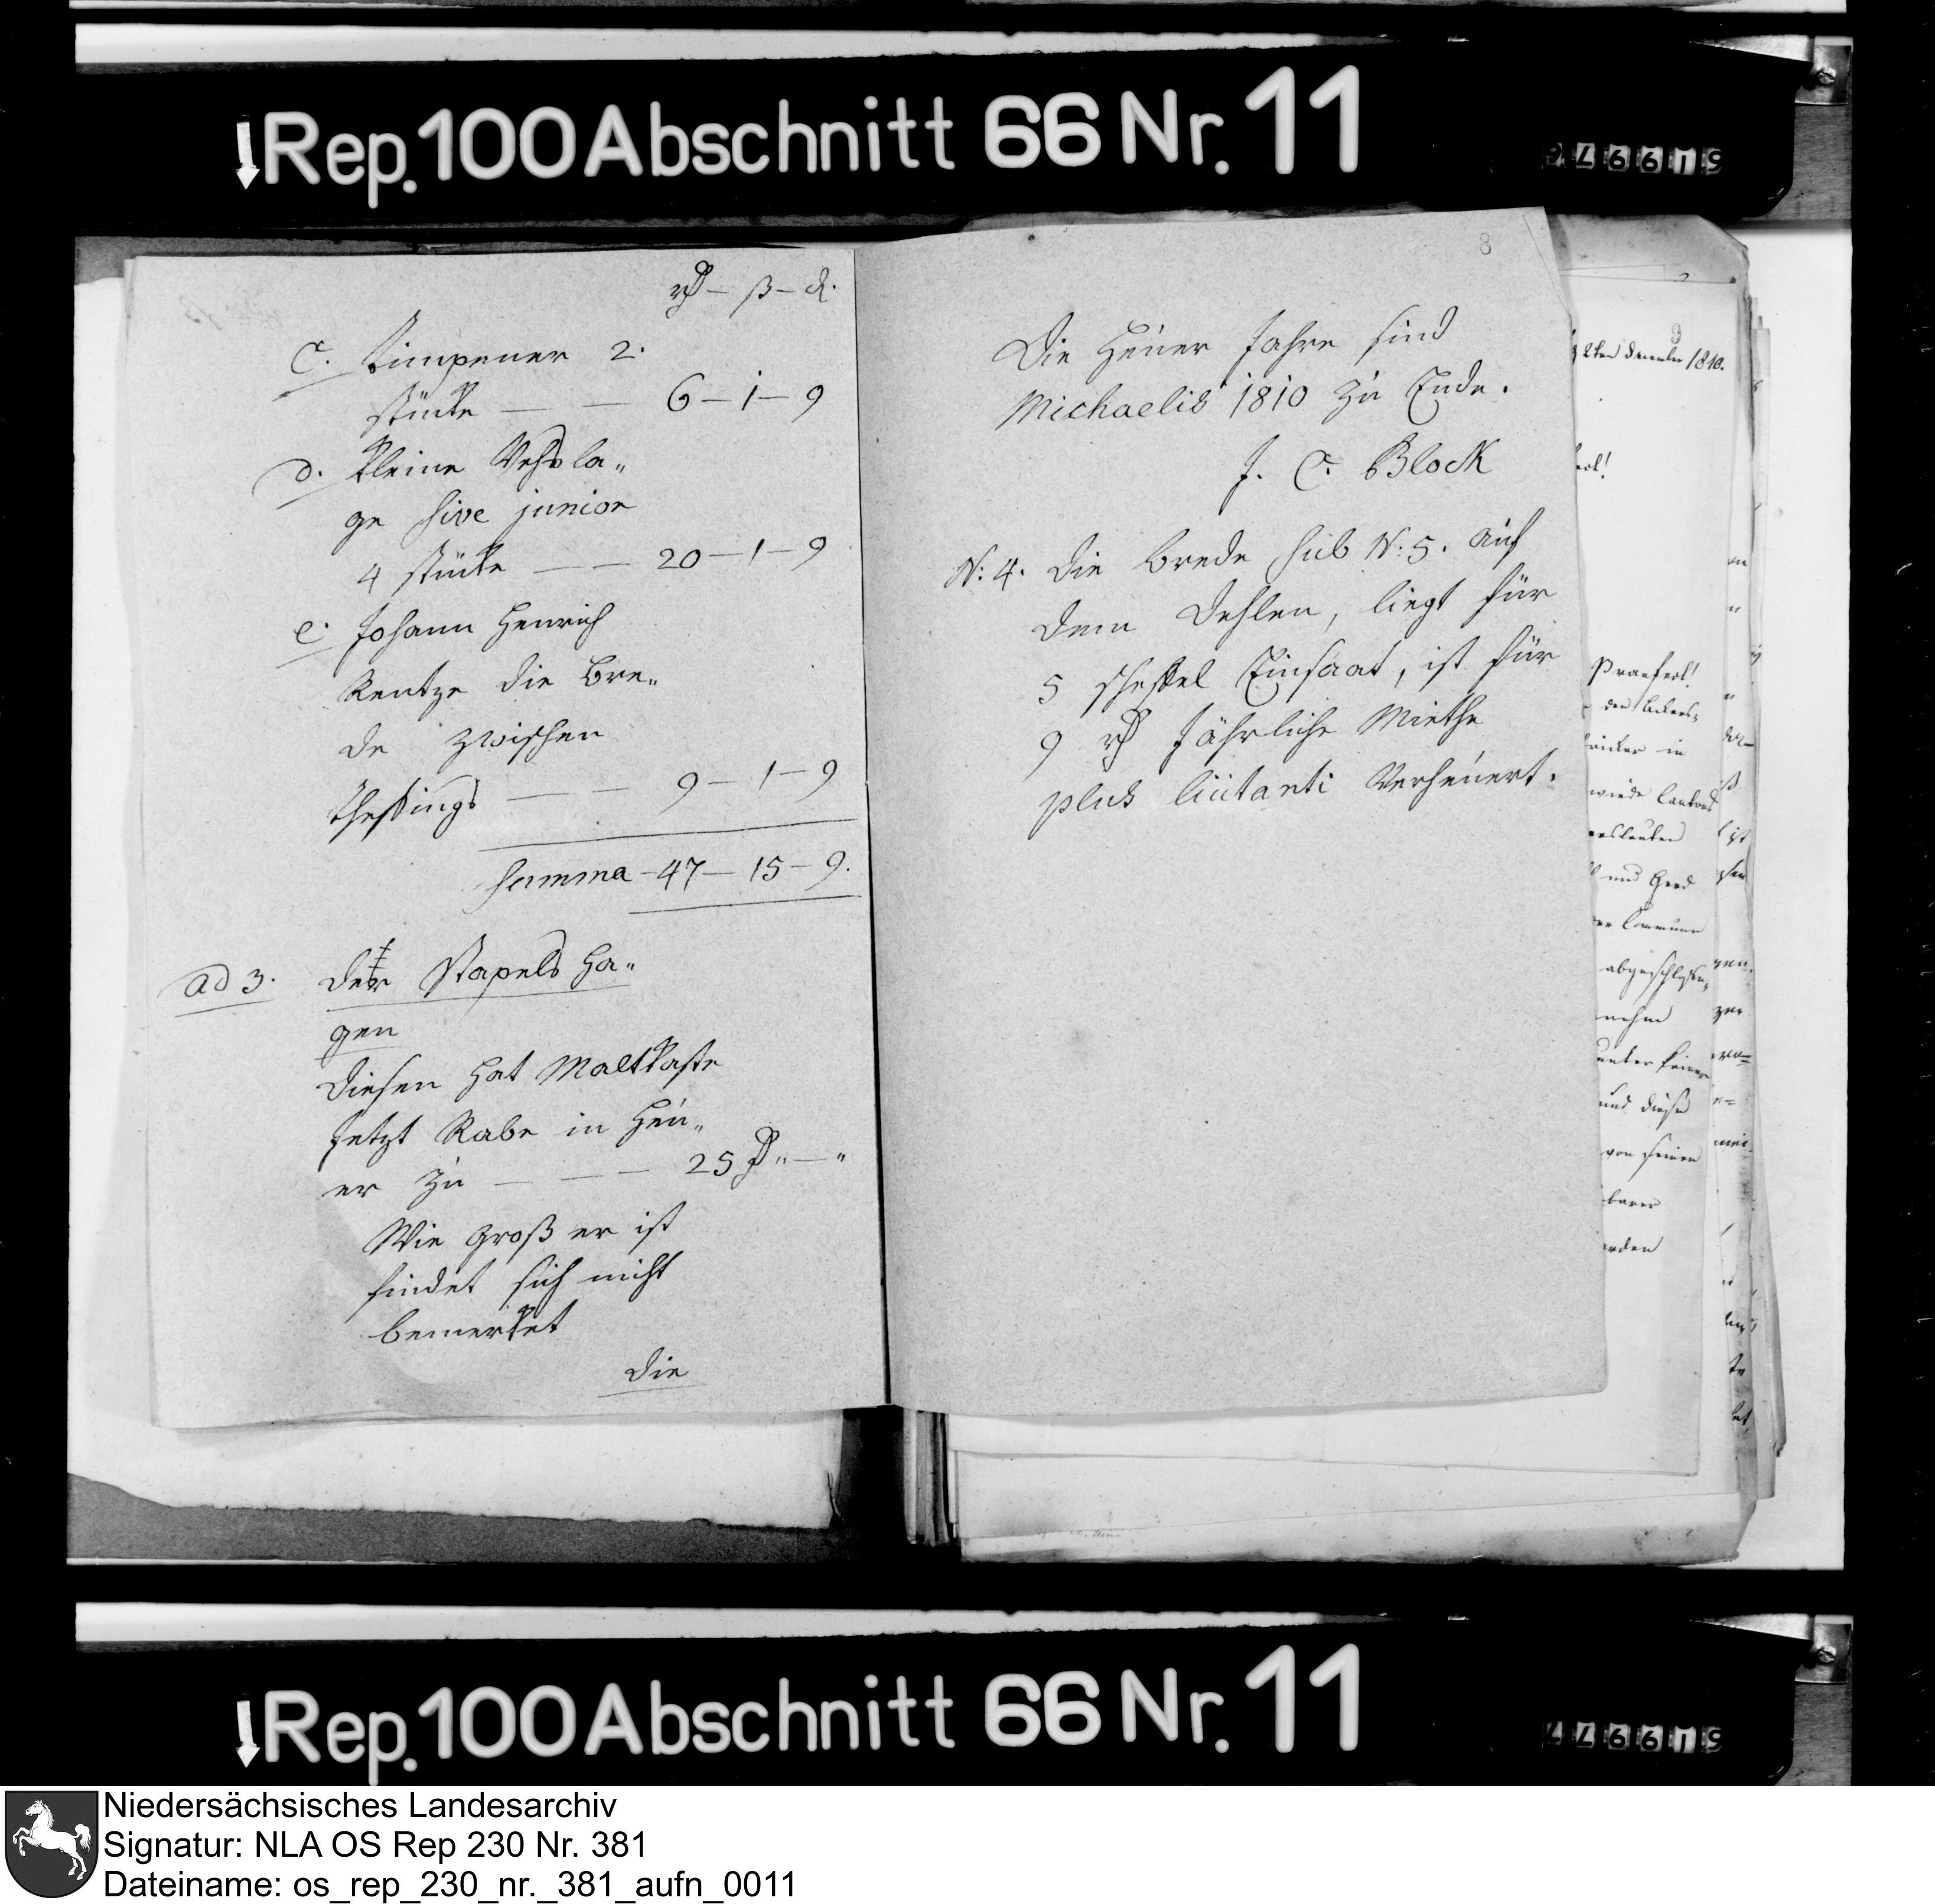 Rep. 100 Abschnitt 66 Nr. 11
rß – ß – d.
C. Timpener 2.
stücke — — 6 – 1 – 9
d. Kleine Vehsla„
ge sive junior
4 stücke — — 20 – 1 – 9
e. Johann Henrich
Rentze die Bre„
de zwischen
— — 9 – 1 – 9
Summa – 47 – 15 – 9.
ad 3. der Stapels Ha„
gen
Diesen hat Maltkaste
jetzt Rabe in Heu„
er zu — — — 25 „ — „
Wie groß er ist
findet sich nicht
bemerket
Die
8
Die Heuer Jahre sind
Michaelis 1810 zu Ende.
J. C. Block
N: 4. Die Brede sub N: 5. auf
dem Dehlen, liegt für
5 scheffel Einsaat, ist für
9 jährliche Miethe
plus licitanti Verheuert.
9
2ten December 1810.
Praefect!
in
und Gerd
Commune
nehm
und diese
von seinen
Rep. 100 Abschnitt 66 Nr. 11
Niedersächsisches Landesarchiv
Signatur: NLA OS Rep 230 Nr. 381
Dateiname: os_rep_230_nr._381_aufn_0011